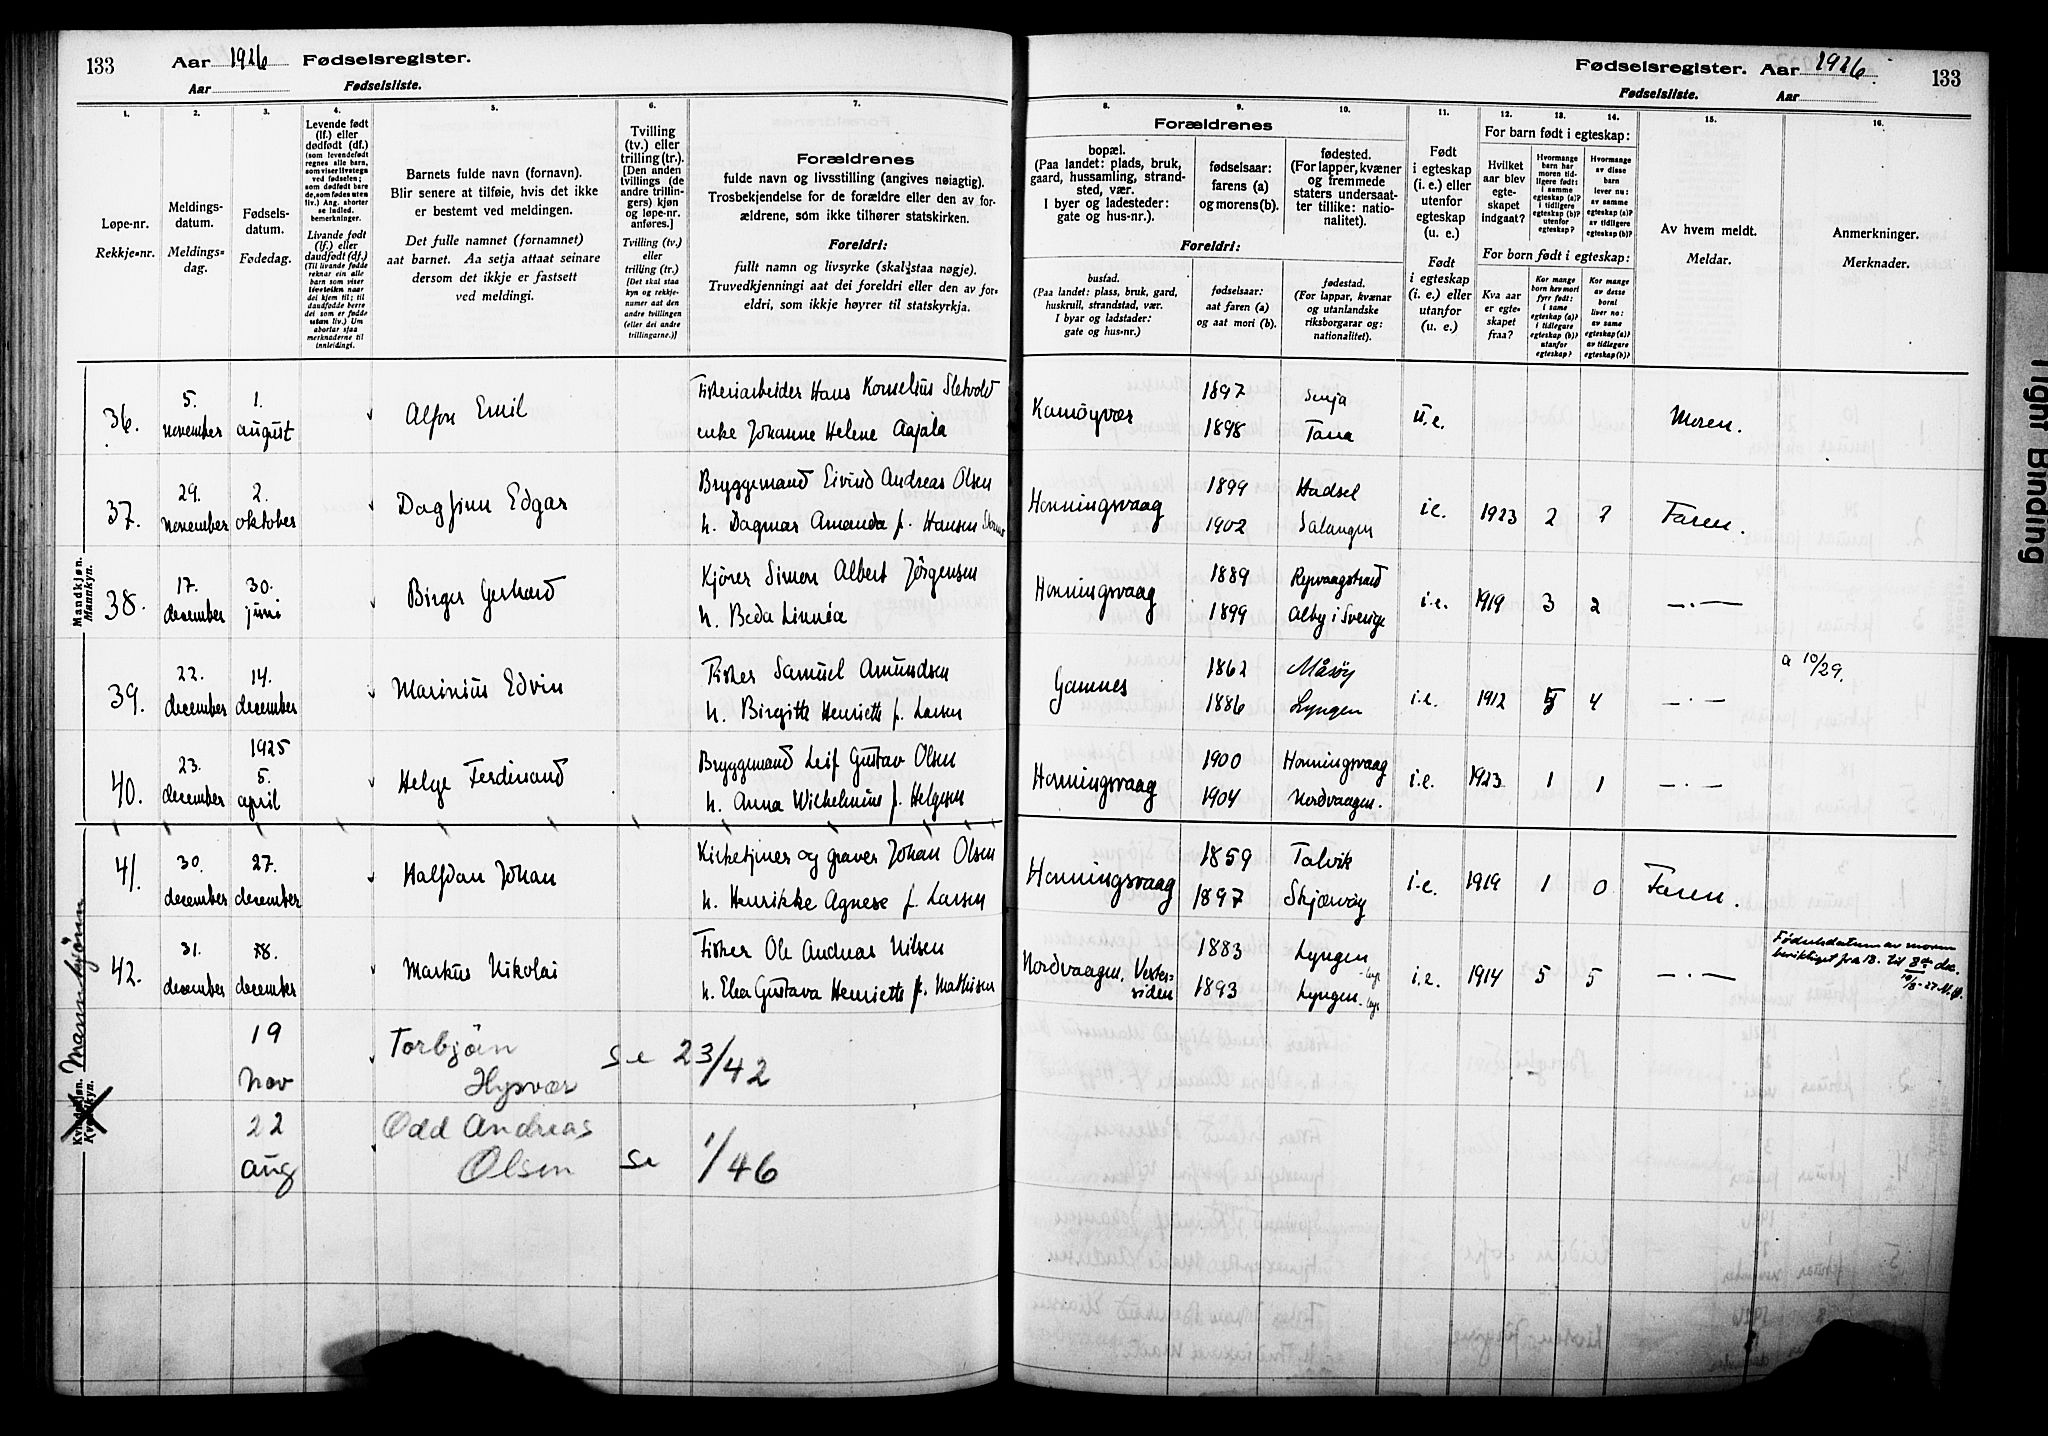 133
Aar 1926 Fødselsregister.
Aar Fødselsliste.
Fødselsregister. Aar 1926.
133
Fødselsliste. Aar
1.
2.
3.
4.
5.
6.
7.
Løpe-nr.
Rekkje-nr.
Meldings-
datum.
Meldings-
dag.
Fødsels-
datum.
Fødedag.
Levende født
(lf.) eller
dødfødt (df.)
(som levendefødt
regnes alle barn,
som viser livstegn
ved fødselen;
som dødfødt bare
de, som fødes uten
liv.) Ang. aborter
se indled.
bemerkninger.
Livande født
(lf.) eller
daudfødt (df.)
(Til livande fødde
reknar ein alle
barn som viser
livsteikn naar
dei kjem til; til
daudfødde berre
dei som er fødde
utan liv.) Um
abortar sjaa
merknaderne til
innleidingi.
Barnets fulde navn (fornavn).
Blir senere at tilføie, hvis det ikke
er bestemt ved meldingen.
Det fulle namnet (fornamnet)
aat barnet. Aa setja attaat seinare
dersom det ikkje er fastsett
ved meldingi.
Tvilling
(tv.) eller
trilling (tr.).
[Den anden
tvillings (de
andre trillin-
gers) kjøn
og løpe-nr.
anføres.]
Tvilling (tv.)
eller
trilling (tr.)
[Det skal staa
kyn og rekkje-
numer aat den
andre tvillingen
(eller dei andre
trillingarne.)]
Forældrenes
fulde navn og livsstilling (angives nøiagtig).
Trosbekjendelse for de forældre eller den av for-
ældrene, som ikke tilhører statskirken.
Foreldri:
fullt namn og livsyrke (skal staa nøgje).
Truvedkjenningi aat dei foreldri eller den av for-
eldri, som ikkje høyrer til statskyrkja.
8.
9.
10.
11.
12.
13.
14.
15.
16.
Forældrenes
bopæl.
(Paa landet: plads, bruk,
gaard, hussamling, strand-
sted, vær.
I byer og ladesteder:
gate og hus-nr.).
fødselsaar:
farens (a)
og morens (b).
fødested.
(For lapper, kvæner
og fremmede
staters undersaat-
ter tillike: natio-
nalitet).
Foreldri:
bustad.
(Paa landet: plass, bruk, gard,
huskrull, strandstad, vær.
I byar og ladstader:
gate og hus-nr.)
fødselsaar:
aat faren (a)
og aat mori (b).
fødestad.
(For lappar, kvænar
og utanlandske
riksborgarar og:
nationalitet).
Født
i egteskap
(i. e.) eller
utenfor
egteskap
(u. e.)
Født
i egteskap
(i. e.) eller
utanfor
(u. e.)
For barn født i egteskap:
Hvilket
aar blev
egte-
skapet
indgaat?
Hvormange
barn har
moren tid-
ligere født:
i samme
egteskap (a)?
i tidligere
egteskap (b)?
utenfor
egteskap?
Hvormange
av disse
barn
lever nu:
av samme
egteskap (a)?
av tidligere
egteskap (b)?
For born født i egteskap:
Kva aar
er egte-
skapet
fraa?
Kor mange
born hev mori
fyrr født:
i same
egteskap (a)?
i tidlegare
egteskap (b)?
utanfor
egteskap?
Kor mange
av desse
borni
liver no:
av same
egteskap (a)?
av tidlegare
egteskap (b)?
Av hvem meldt.
Meldar.
Anmerkninger.
Merknader.
Mandkjøn.
Mannkyn.
36. 5. november 1. august Alfon Emil Fiskeriarbeider Hans Kornelius Sletvold
enke Johanne Helene Aajala
Kamøyvær 1897 Senja u.e. Moren.
1898 Tana
37. 29. november 2. oktober Dagfinn Edgar Bryggemand Eivind Andreas Olsen
h. Dagmar Amanda f. Hansen
Honningsvaag 1899 Hadsel i.e. 1923 2 2 Faren.
1902 Salangen
38. 17. december 30. juni Birger Gerhard Kjører Simon Albert Jørgensen
h. Beda Linnéa
Honningsvaag 1889 Repvaagstrand i.e. 1919 3 2 —·—
1899 Alby i Sverige
39. 22. december 14. december Marinius Edvin Fisker Samuel Amundsen
h. Birgitte Henriette f. Larsen
Gamnes 1862 Måsøy i.e. 1912 5 4 —·— a 10/29.
1886 Lyngen
40. 23. december 1925 5. april Helge Ferdinand Bryggemand Leif Gustav Olsen
h. Anna Wilhelmine f. Helgesen
Honningsvaag 1900 Honningsvaag i.e. 1923 1 1 —·—
1904 Nordvaagen.
41. 30. december 27. december Halfdan Johan Kirketjener og graver Johan Olsen
h. Henrikke Agnese f. Larsen
Honningsvaag 1859 Talvik i.e. 1919 1 0 Faren.
1897 Skjærvøy
42. 31. december 18. december Markus Nikolai Fisker Ole Andreas Nilsen
h. Elea Gustava Henriette f. Mathisen
Nordvaagen, Vester-
siden
1883 Lyngen i.e. 1914 5 5 —·—
1893 Lyngen
Fødselsdatum av moren
beriktiget fra 18. til 8de dec.
10/8-27 M.Ø.
Mannkjønn
Kvindekjøn.
Kvendekyn.
19 Nov Torbjön Hysvær se 23/42
22 aug Odd Andreas Olsen se 1/46
Tight Binding